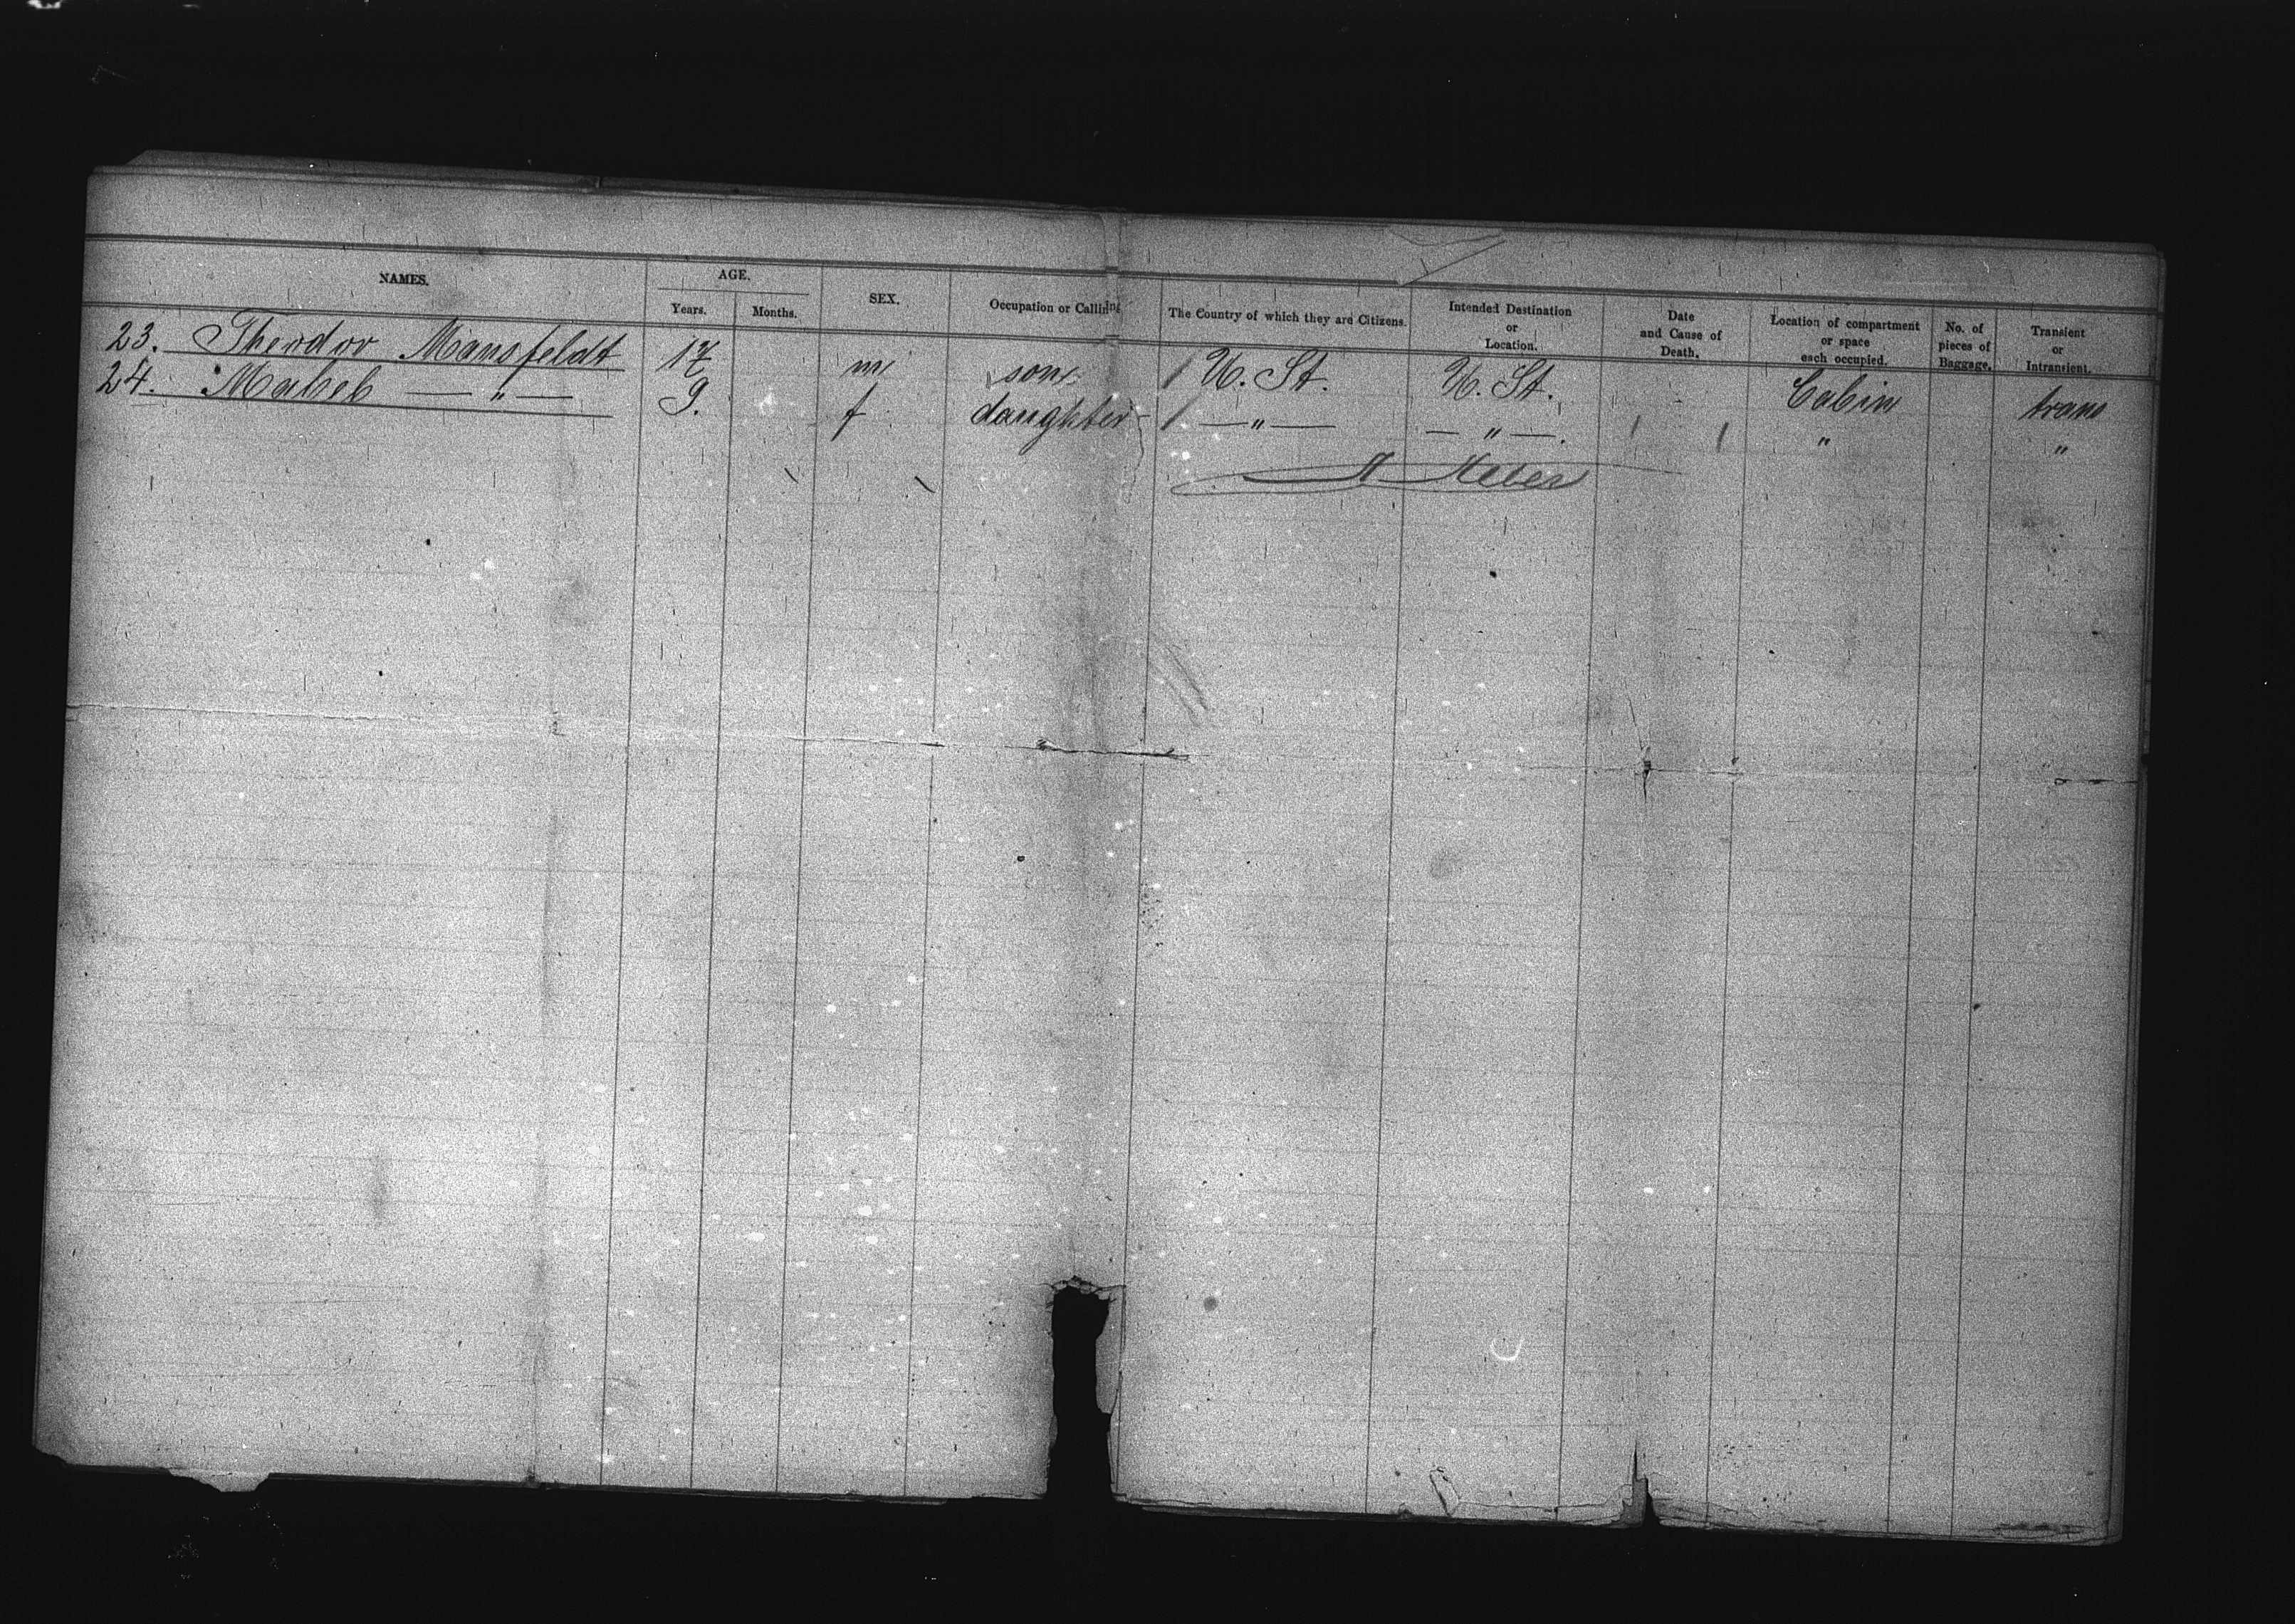 NAMES. AGE. SEX. Occupation or Calling The Country of which they are Citizens. Intended Destination or Location. Date and Cause of Death. Location of compartment or space each occupied. No. of pieces of Baggage. Transient or Intransient.
Years. Months.
23. Theodor Mansfeldt 17 m son U. St. U. St. Cabin trans
24. Mabel — " — 9. f daughter — " — — " —. " "